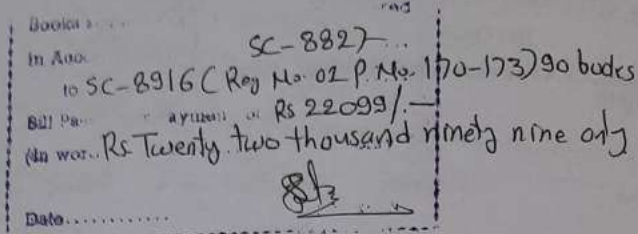 Books
SC-8827-...
In Acc.
to SC-8916 ( Reg No. 02 P. No. 170-173) 90 books
Bill Pa.. ayment Rs 22099/.—
(In wor.. Rs. Twenty two thousand ninety nine only
Date............